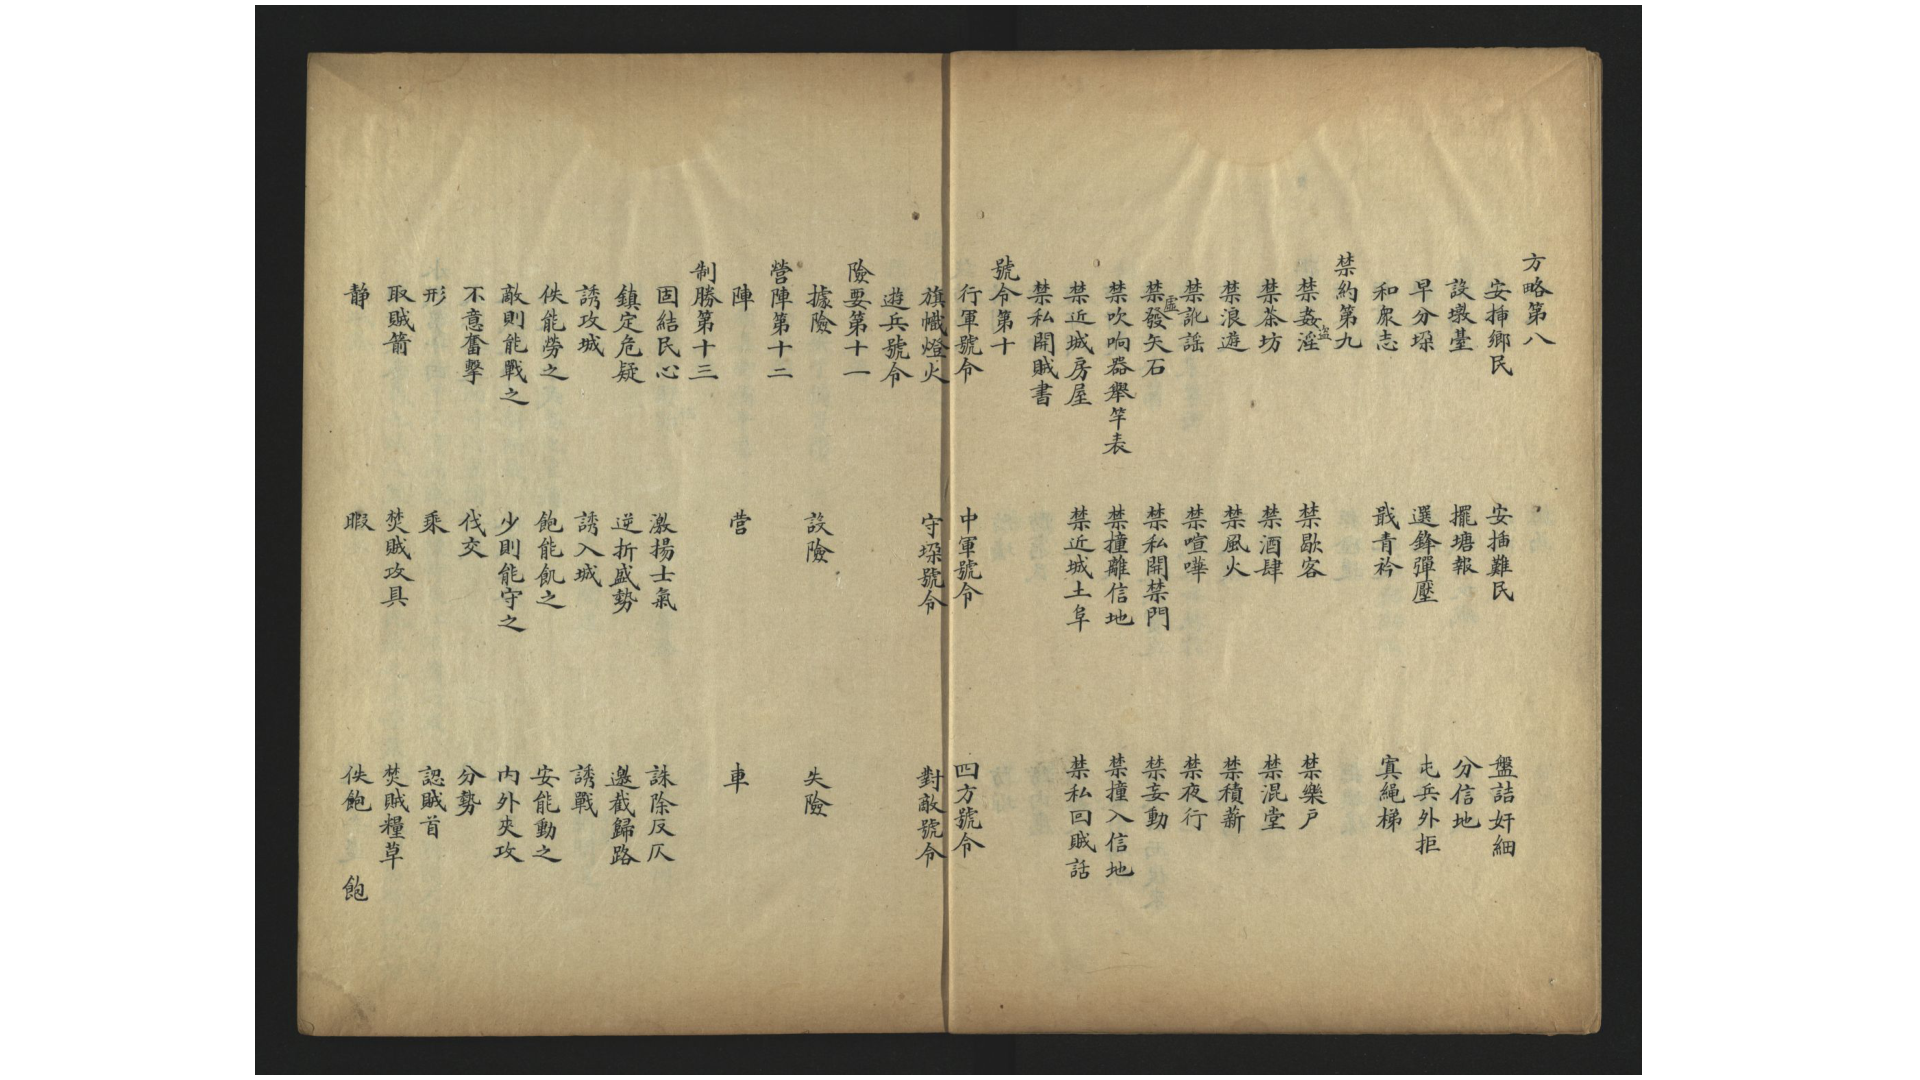 方略第八
安挿鄉民 安插難民 盤詰奸細
設墩臺 擺塘報 分信地
早分垜 選鋒彈壓 屯兵外拒
和衆志 戢青衿 寘繩梯
禁約第九
禁姦淫盜 禁歇客 禁樂户
禁茶坊 禁酒肆 禁混堂
禁浪遊 禁風火 禁積薪
禁訛謡 禁喧嘩 禁夜行
禁虛發矢石 禁私開禁門 禁妄動
禁吹响器舉竿表 禁撞離信地 禁撞入信地
禁近城房屋 禁近城土阜 禁私回賊話
禁私開賊書
號令第十
行軍號令 中軍號令 四方號令
旗幟燈火 守垜號令 對敵號令
遊兵號令
險要第十一
據險 設險 失險
營陣第十二
陣 营 車
制勝第十三
固結民心 激揚士氣 誅除反仄
鎮定危疑 逆折盛勢 邀截歸路
誘攻城 誘入城 誘戰
佚能勞之 飽能飢之 安能動之
敵則能戰之 少則能守之 内外夾攻
不意奮擊 伐交 分勢
形 乘 認賊首
取賊箭 焚賊攻具 焚賊糧草
静 暇 佚飽 飽